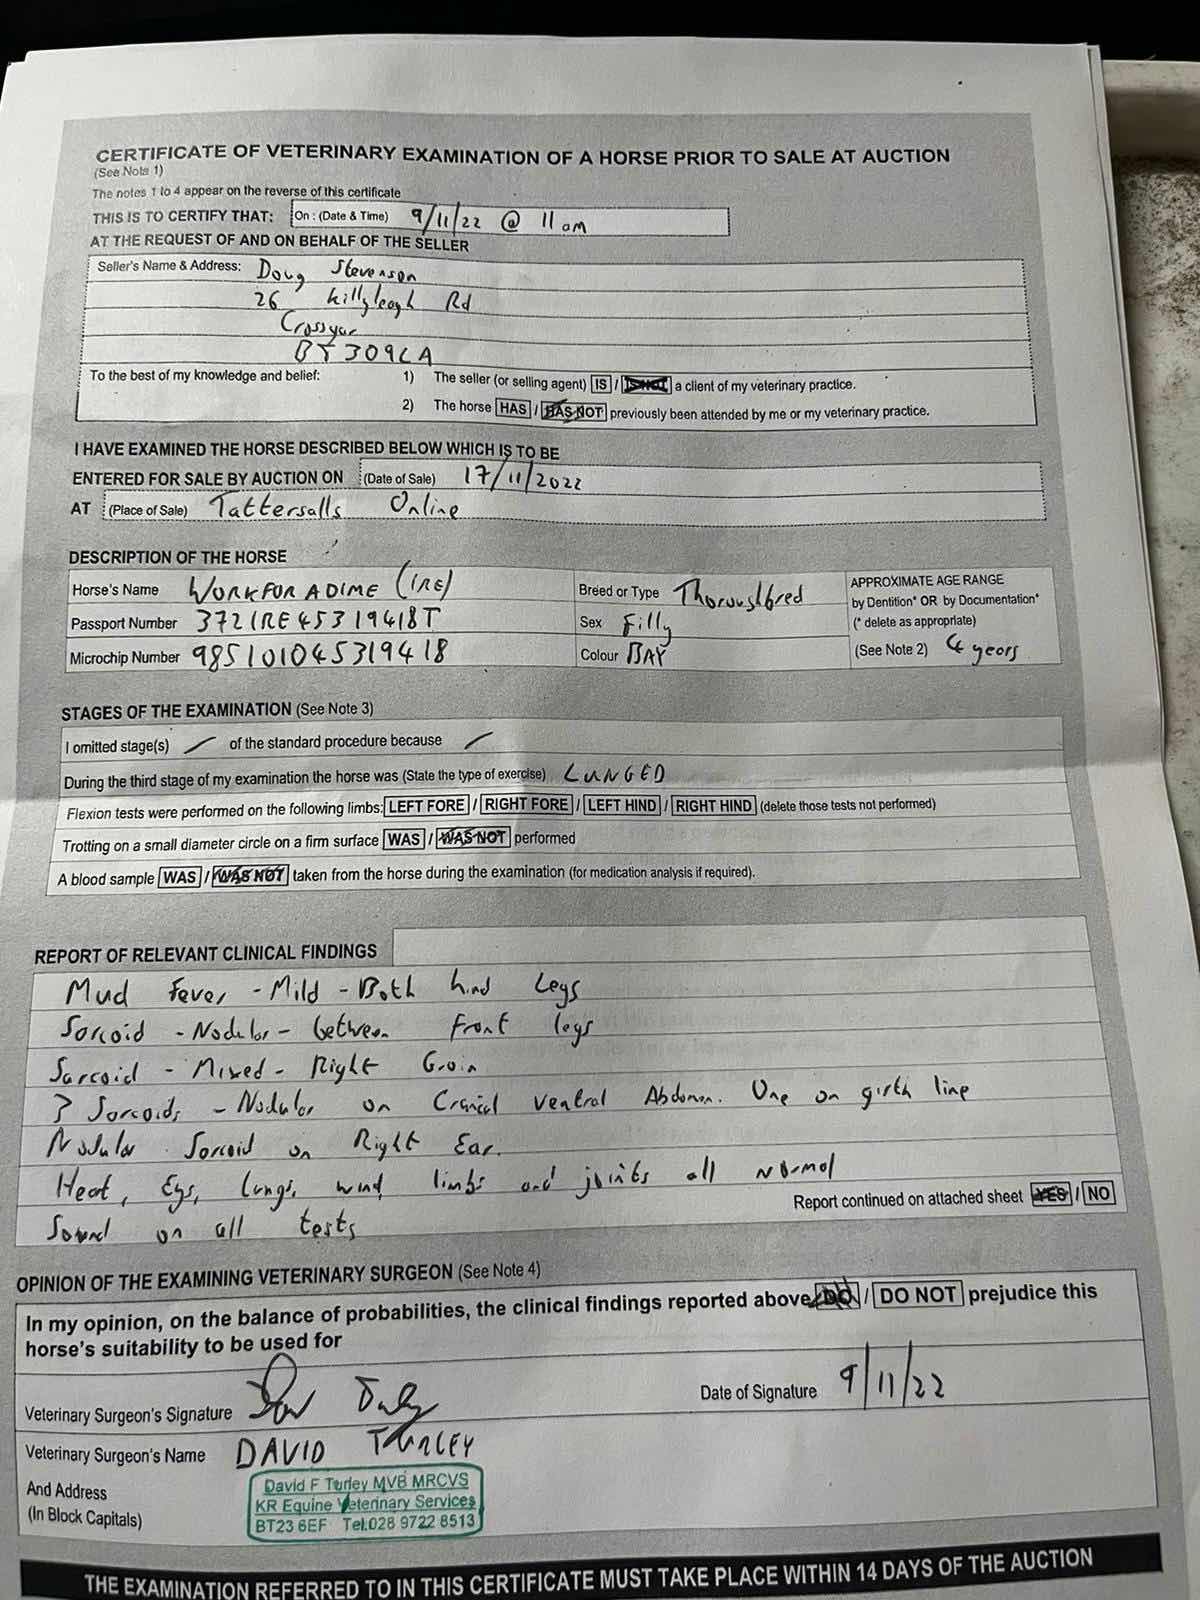 CERTIFICATE OF VETERINARY EXAMINATION OF A HORSE PRIOR TO SALE AT AUCTION
(See Note 1)
The notes 1 to 4 appear on the reverse of this certificate
THIS IS TO CERTIFY THAT: On : (Date & Time) 9/11/22 @ 11am
AT THE REQUEST OF AND ON BEHALF OF THE SELLER
Seller's Name & Address: Doug Stevenson
26 Killyleagh Rd
Crossgar
BT309LA
To the best of my knowledge and belief: 1) The seller (or selling agent) IS / IS NOT a client of my veterinary practice.
2) The horse HAS / HAS NOT previously been attended by me or my veterinary practice.
I HAVE EXAMINED THE HORSE DESCRIBED BELOW WHICH IS TO BE
ENTERED FOR SALE BY AUCTION ON (Date of Sale) 17/11/2022
AT (Place of Sale) Tattersalls Online
DESCRIPTION OF THE HORSE
Horse's Name WORKFORADIME (IRE) Breed or Type Thoroughbred APPROXIMATE AGE RANGE
by Dentition* OR by Documentation*
Passport Number 372IRE45319418T Sex Filly (* delete as appropriate)
Microchip Number 985101045319418 Colour BAY (See Note 2) 4 years
STAGES OF THE EXAMINATION (See Note 3)
I omitted stage(s) / of the standard procedure because /
During the third stage of my examination the horse was (State the type of exercise) LUNGED
Flexion tests were performed on the following limbs: LEFT FORE / RIGHT FORE / LEFT HIND / RIGHT HIND (delete those tests not performed)
Trotting on a small diameter circle on a firm surface WAS / WAS NOT performed
A blood sample WAS / WAS NOT taken from the horse during the examination (for medication analysis if required).
REPORT OF RELEVANT CLINICAL FINDINGS
Mud Fever - Mild - Both hind Legs
Sarcoid - Nodular - between Front legs
Sarcoid - Mixed - Right Groin
3 Sarcoids - Nodular on Cranial ventral Abdomen. One on girth line
Nodular Sarcoid on Right Ear.
Heat, Eys, Lungs, wind, limbs and joints all normal
Report continued on attached sheet YES / NO
Sound on all tests
OPINION OF THE EXAMINING VETERINARY SURGEON (See Note 4)
In my opinion, on the balance of probabilities, the clinical findings reported above DO / DO NOT prejudice this
horse's suitability to be used for
Veterinary Surgeon's Signature Date of Signature 9/11/22
Veterinary Surgeon's Name DAVID TURLEY
And Address
(In Block Capitals)
David F Turley MVB MRCVS
KR Equine Veterinary Services
BT23 6EF Tel.028 9722 8513
THE EXAMINATION REFERRED TO IN THIS CERTIFICATE MUST TAKE PLACE WITHIN 14 DAYS OF THE AUCTION